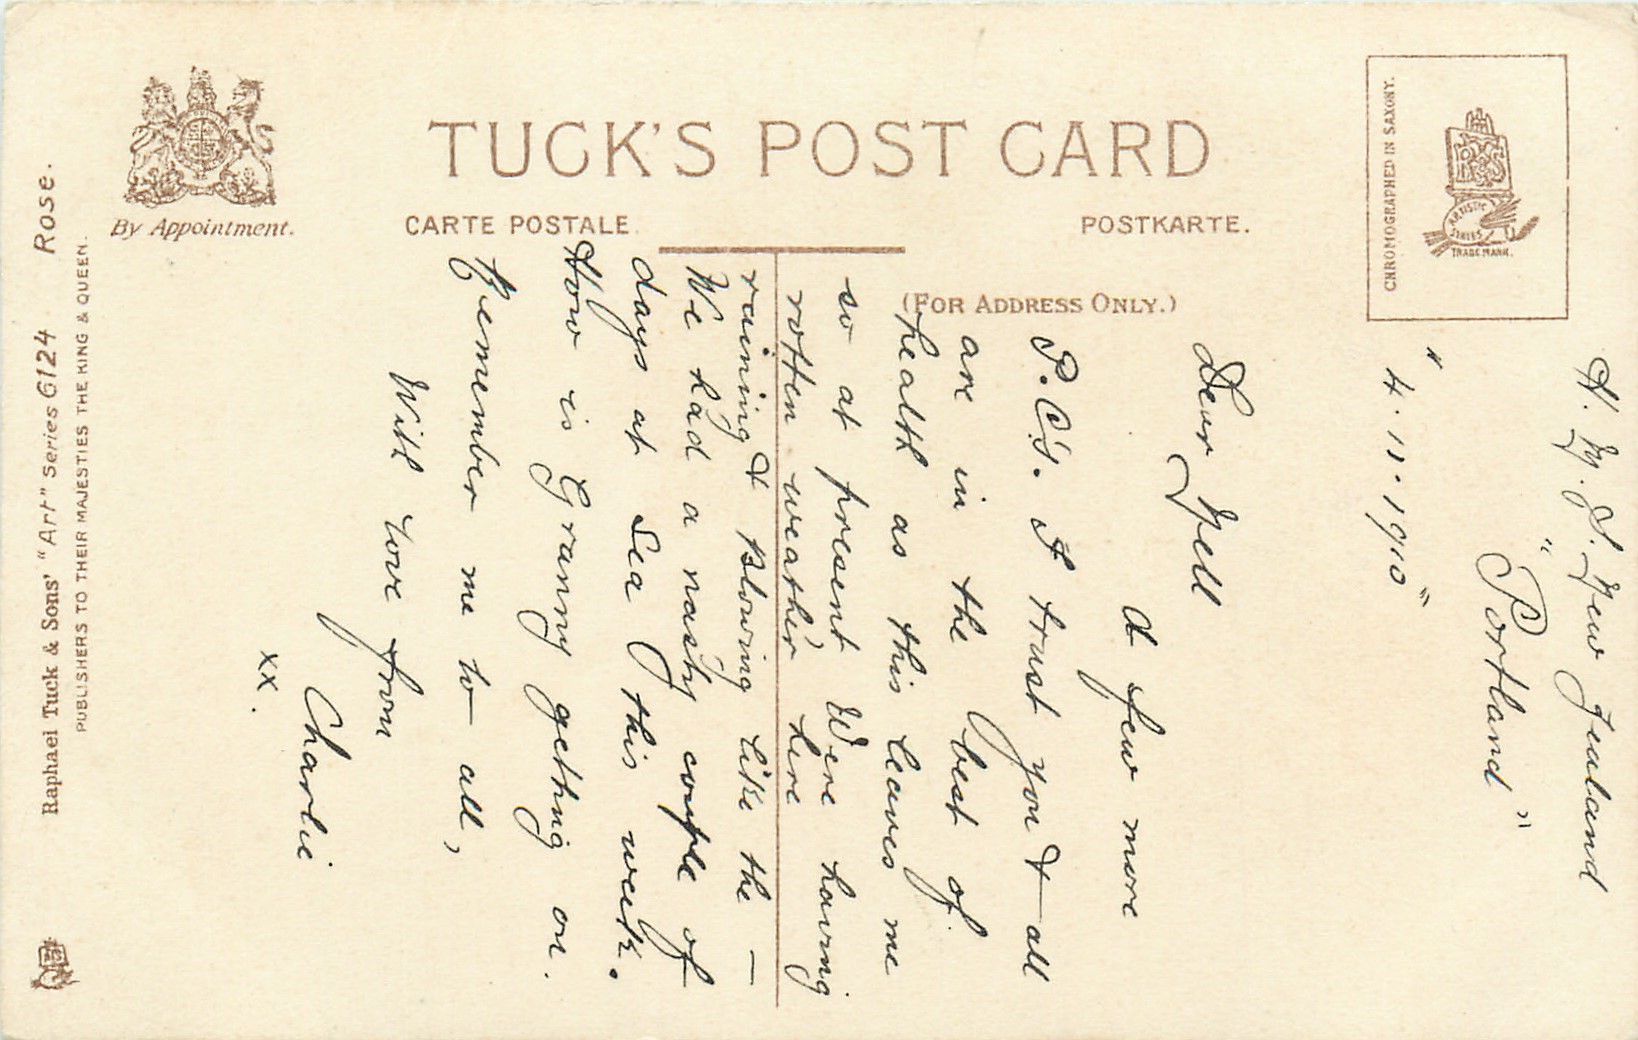 TUCK'S POST CARD
By Appointment.
CARTE POSTALE
POSTKARTE.
(FOR ADDRESS ONLY.)
CHROMOGRAPHED IN SAXONY.
ARTISTIC
SERIES
TRADE MARK.
Raphael Tuck & Sons' "Art" Series 6124 Rose.
PUBLISHERS TO THEIR MAJESTIES THE KING & QUEEN.
H. M. S. New Zealand
"Portland"
"4.11.1910"
Dear Nell
A few more
P.C's. I trust you & all
are in the best of
health as this leaves me
so at present Were having
rotten weather here
raining & Blowing like the —
We had a nasty couple of
days at Sea this week.
How is Granny getting on.
Remember me to all,
With love from
Charlie
xx.